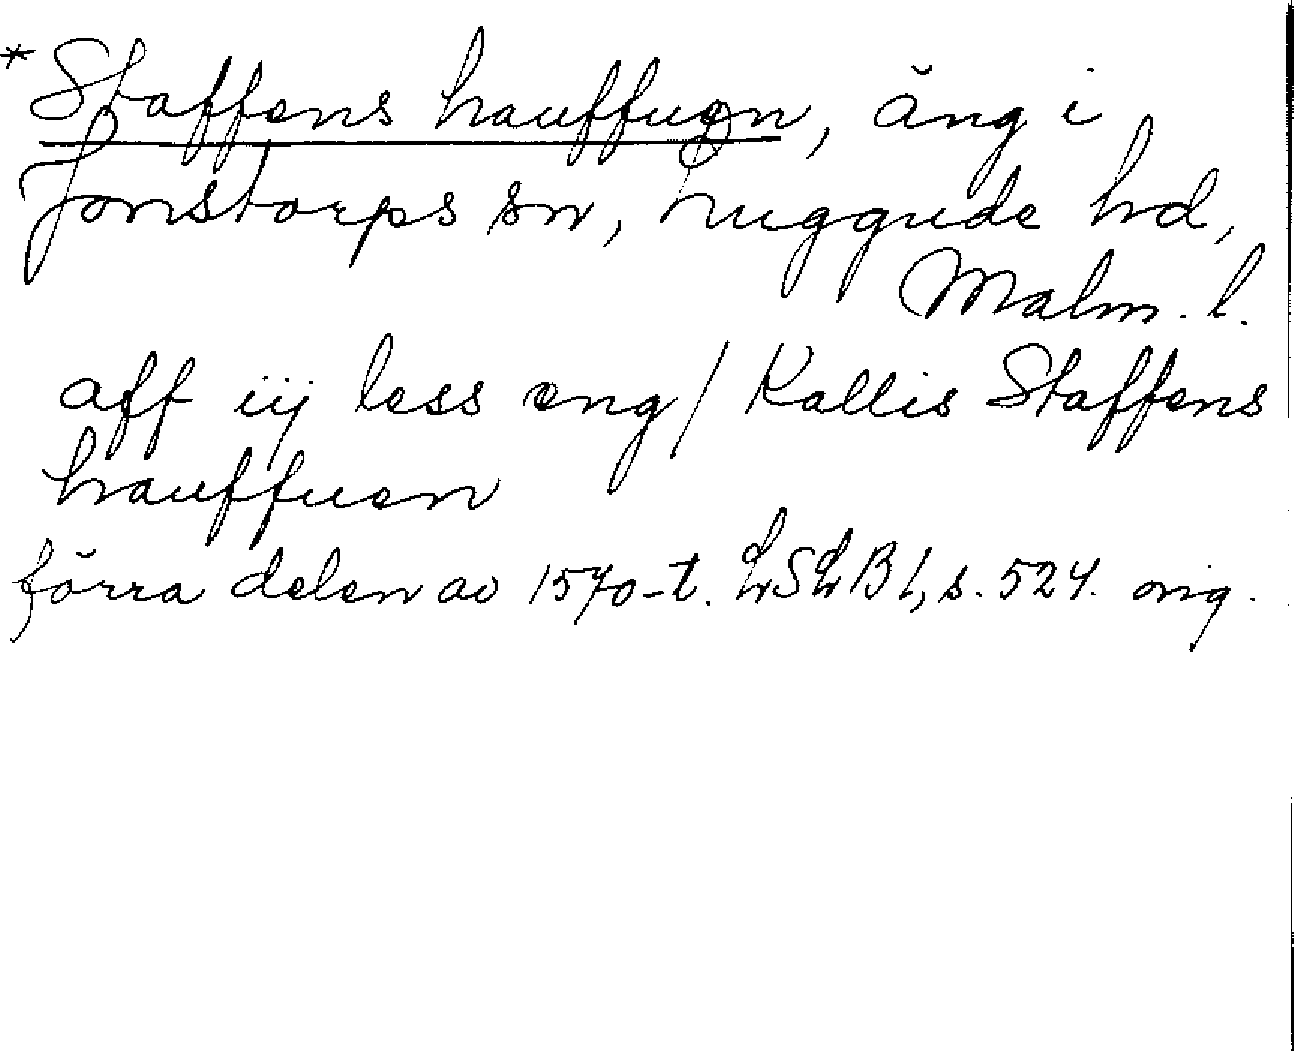 *Staffens hauffuen, äng i
Jonstorps sn, Luggude hd,
Malm. l.
aff iij less eng / Kallis Staffens
hauffuen
förra delen av 1570-t. LSLB I, s. 524. orig.